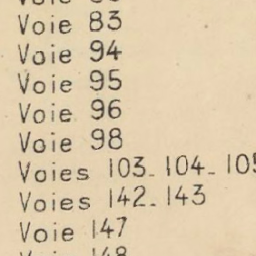 Voie 83
Voie 94
Voie 95
Voie 96
Voie 98
Voies 103_104_105
Voies 142_143
Voie 147
Voie 148